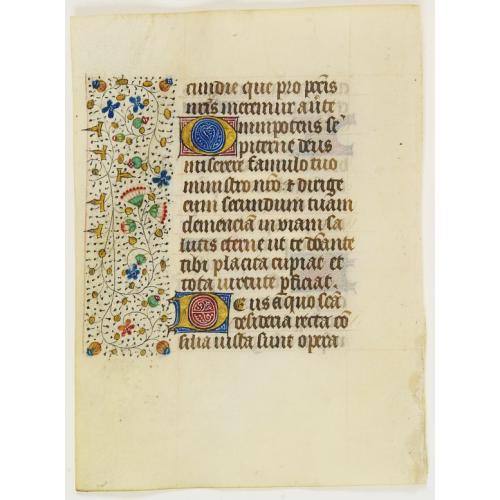 cundie que pro pctīs
nrīs meremur aūte
Omnipotens sē
piterne deus
miserere famulo tuo
ministro nrō & dirige
eum secundum tuam
clemenciā in viam sa
lutis eterne ut te dōante
tibi placita cupiat et
tota virtute pficiat.
Deus a quo scā
desideria recta cō
silia iusta sunt opera